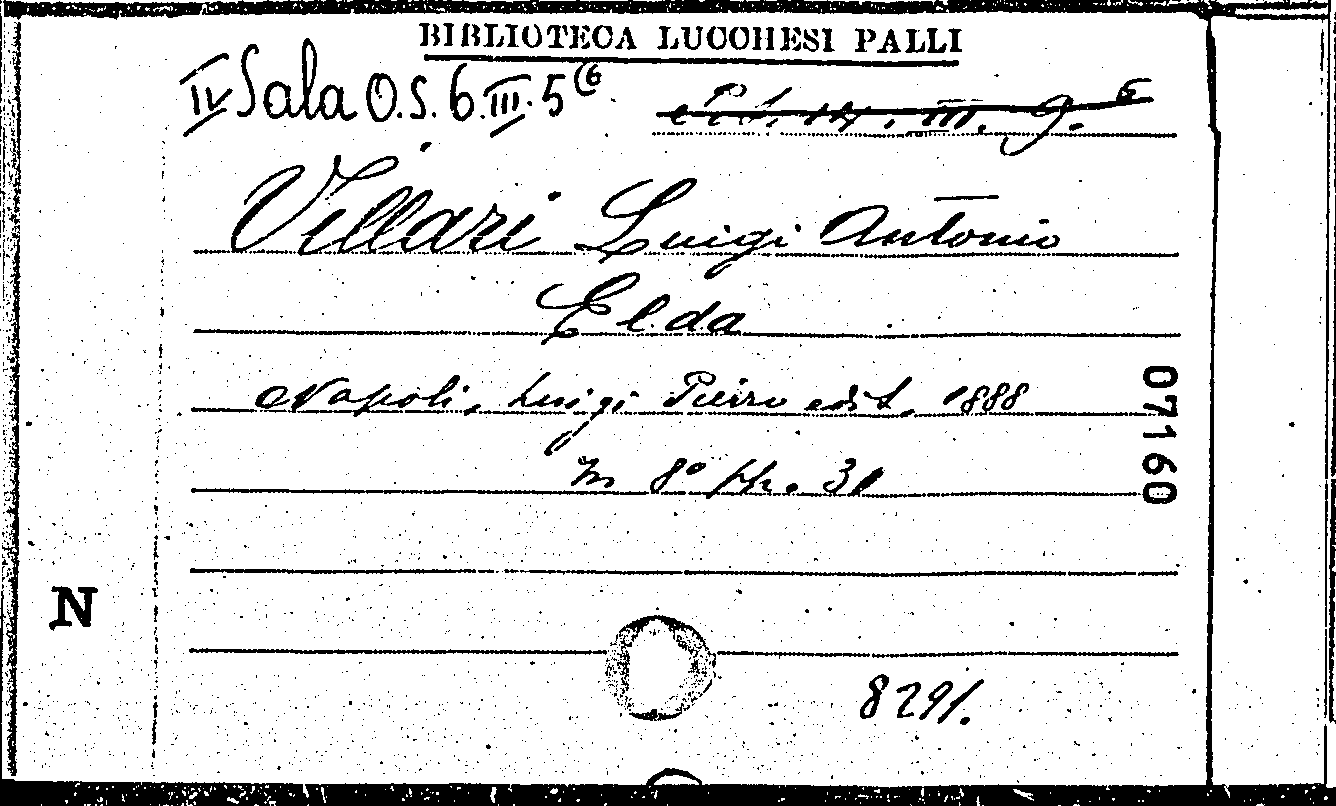 BIBLIOTECA LUCCHESI PALLI
IV Sala O.S. 6. III. 5 (6
III. 9. 6
Villari Luigi Antonio
Elda
Napoli, Luigi Pierro edit. 1888
in 8° pp. 31
07160
N
8291.